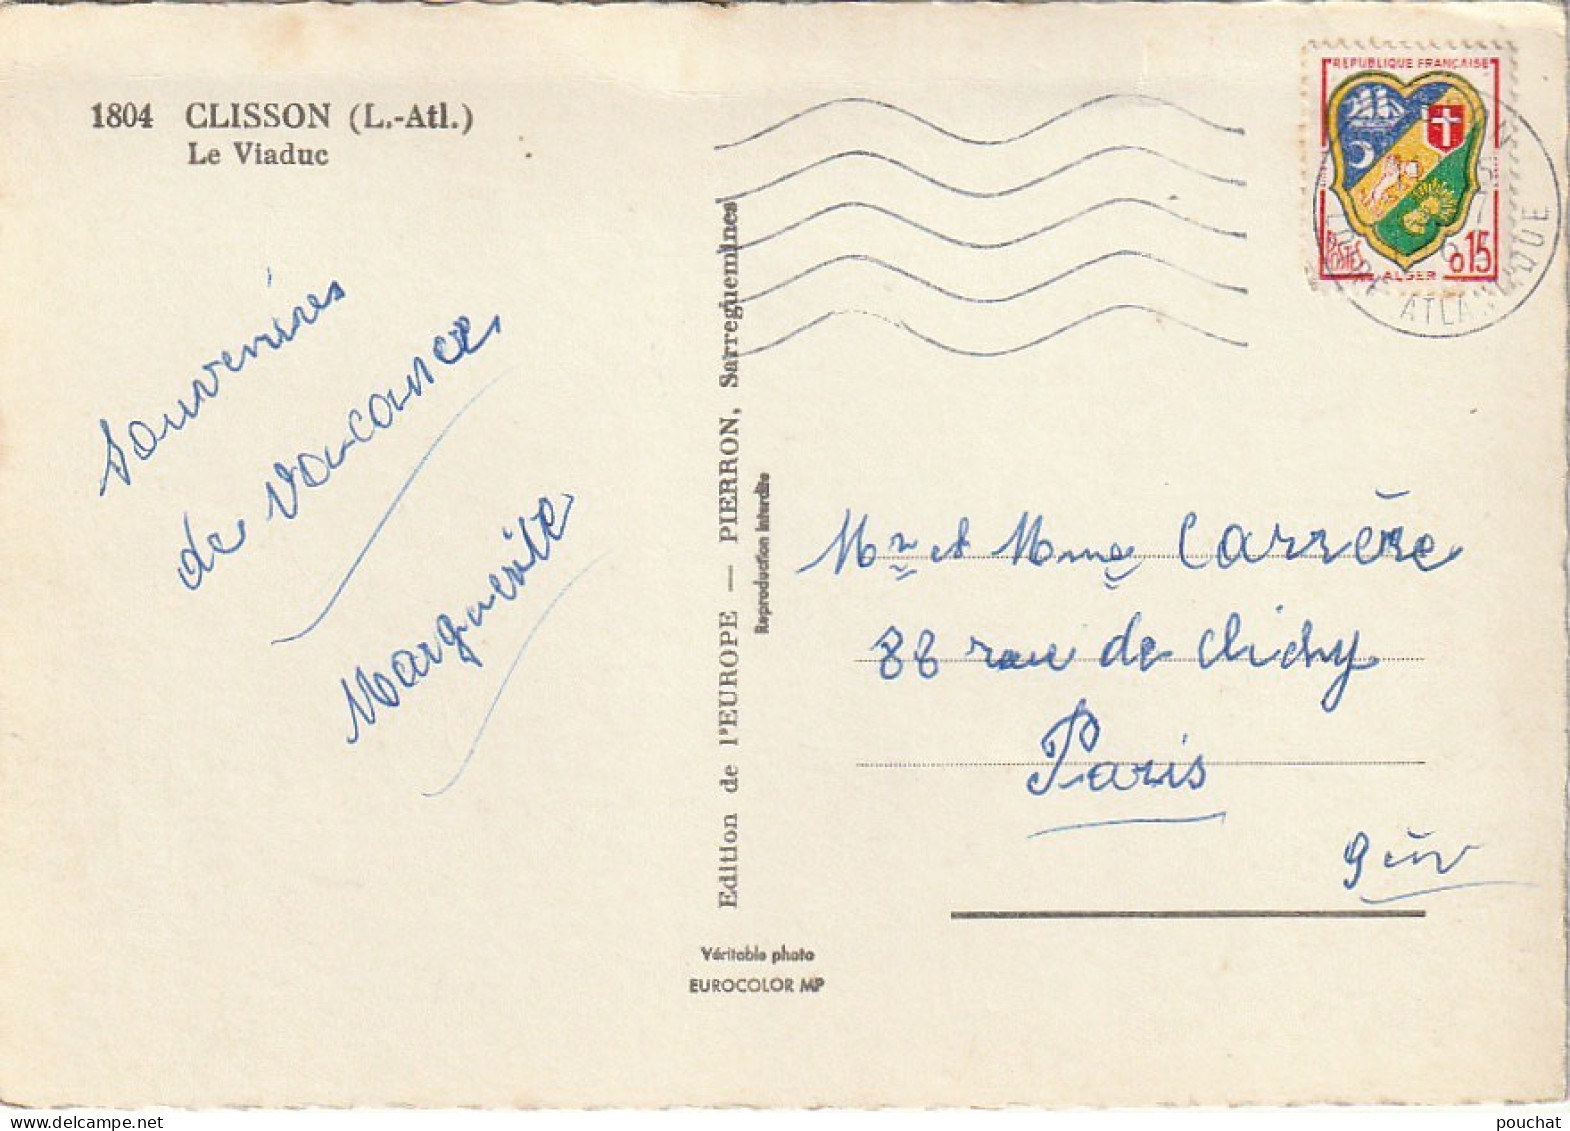 1804 CLISSON (L.-Atl.)
Le Viaduc
Souvenires
de vacances
Marguerite
Edition de l'EUROPE — PIERRON, Sarreguemines
Reproduction interdite
Véritable photo
EUROCOLOR MP
REPUBLIQUE FRANÇAISE
POSTES
0,15
ALGER
LOIRE ATLANTIQUE
Mr et Mme Carrère
88 rue de Clichy
Paris
9èv
pouchat